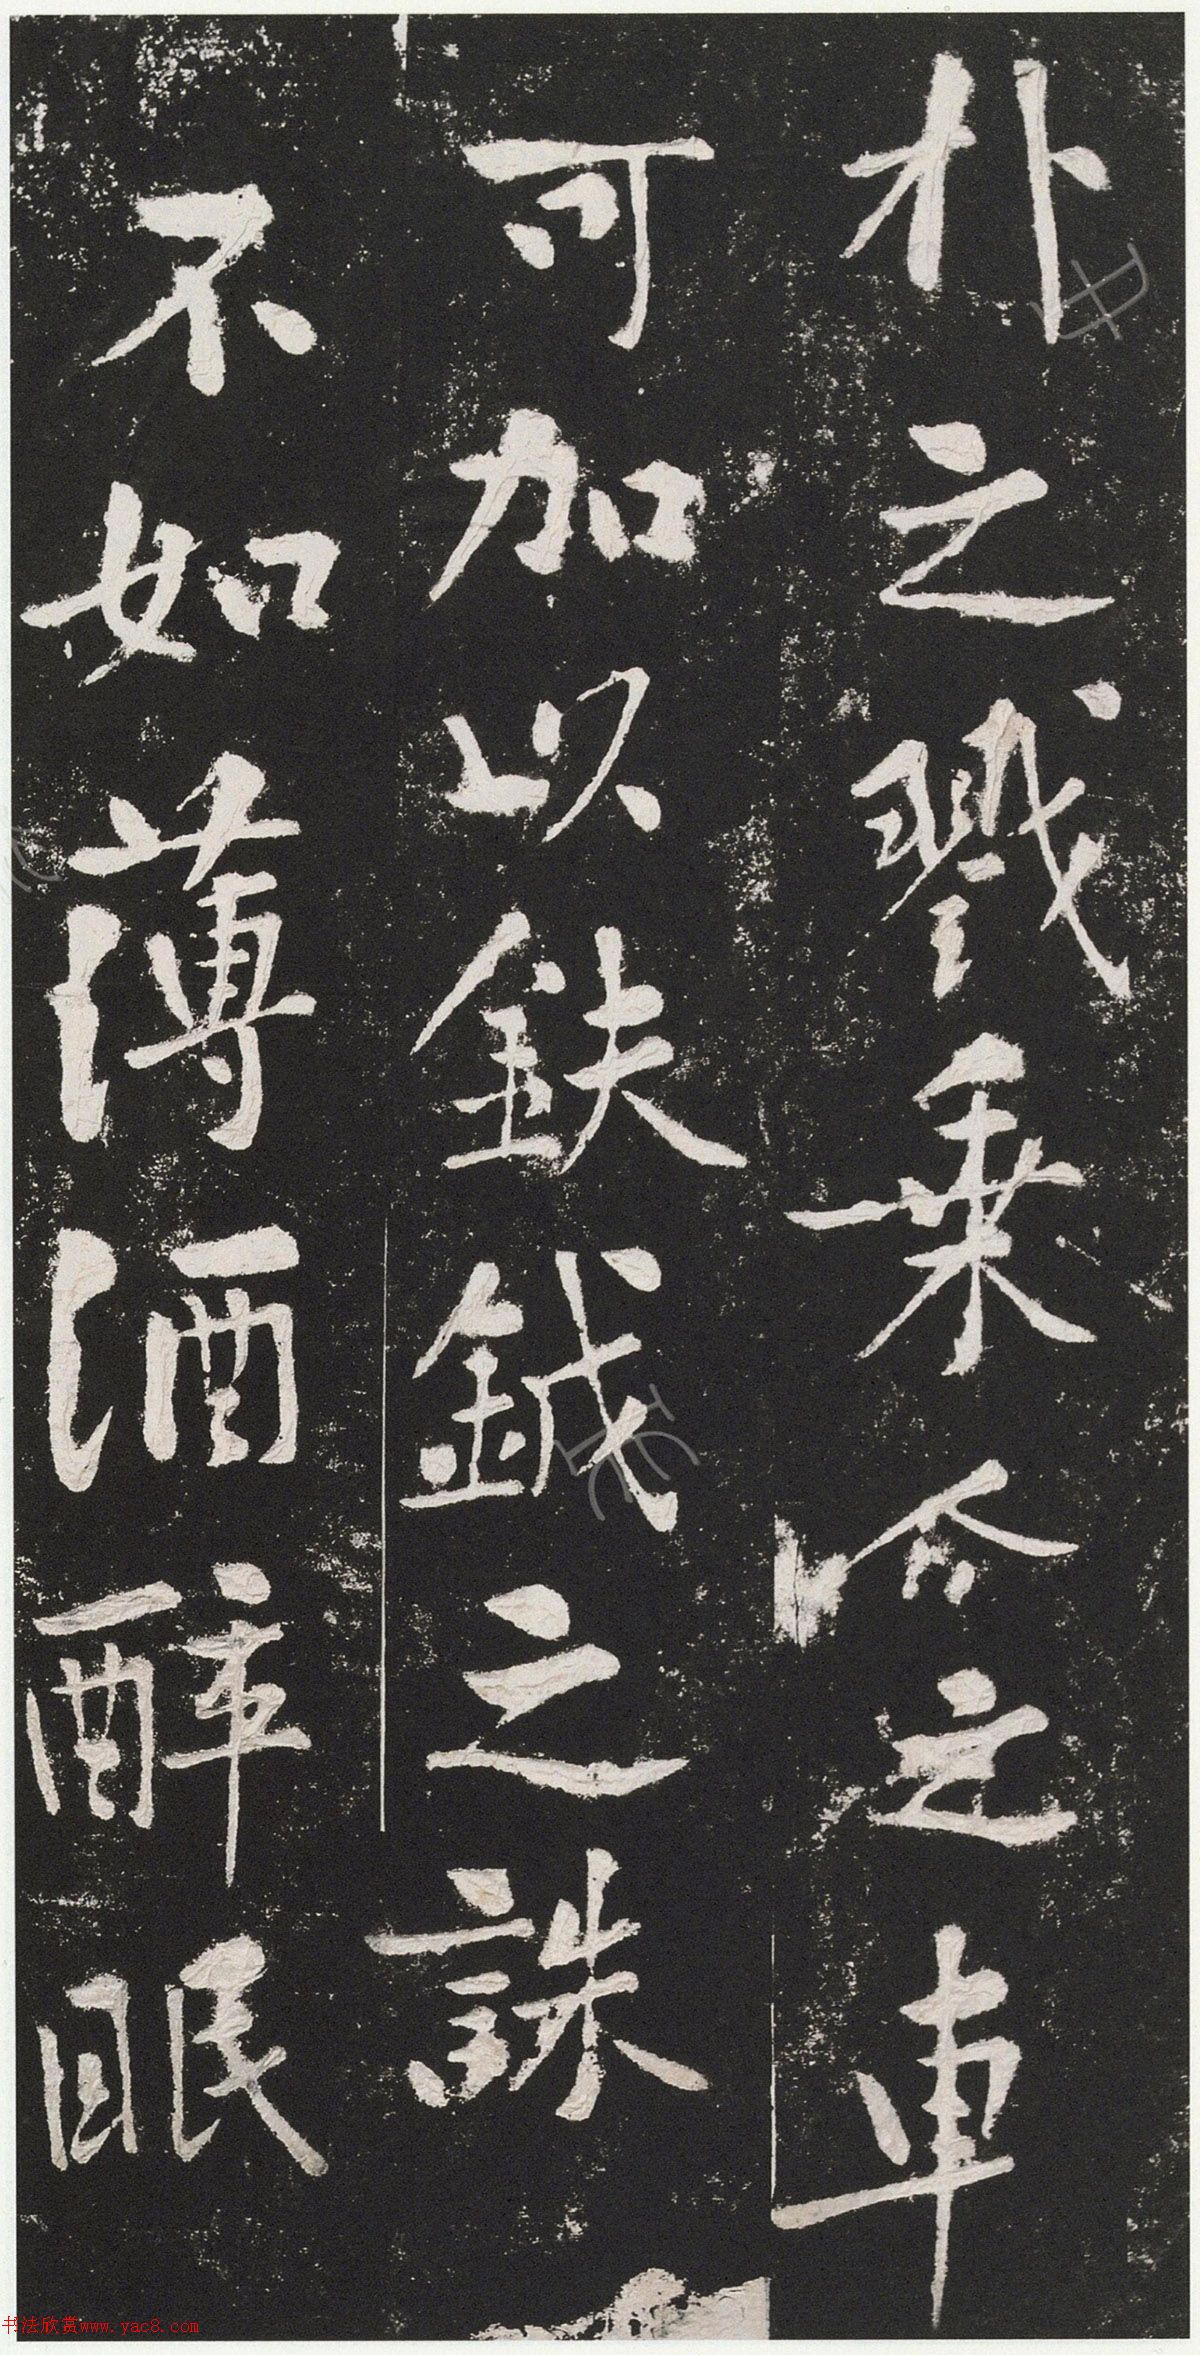 朴之戮乘人之車
可加以鈇鉞之誅
不如薄酒醉眠
书法欣赏www.yac8.com